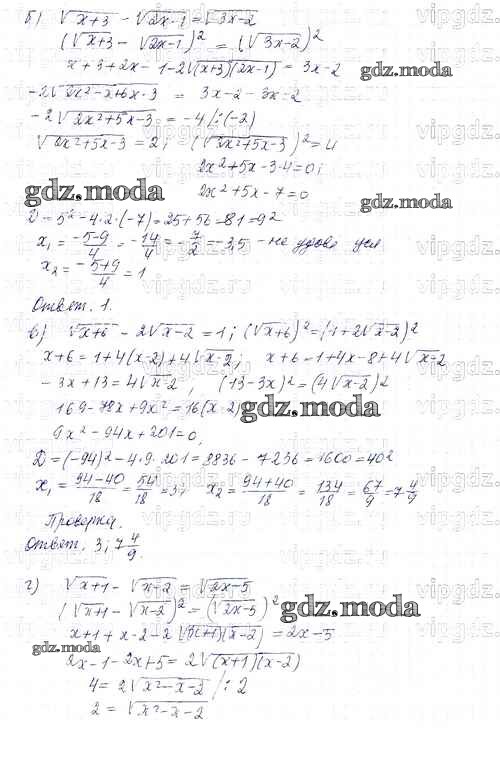 б) √x+3 - √2x-1 = √3x-2
(√x+3 - √2x-1)² = (√3x-2)²
x+3+2x-1-2√(x+3)(2x-1) = 3x-2
gdz.moda
-2√2x²-x+6x-3 = 3x-2-3x-2
-2√2x²+5x-3 = -4 /:(-2)
√2x²+5x-3 = 2; (√2x²+5x-3)² = 4
2x²+5x-3-4=0;
2x²+5x-7=0
gdz.moda
D=5²-4·2·(-7)=25+56=81=9²
x₁ = -5-9/4 = -14/4 = -7/2 = -3,5 - не удовл. усл.
x₂ = -5+9/4 = 1
Ответ. 1.
в) √x+6 - 2√x-2 = 1; (√x+6)² = (1+2√x-2)²
x+6=1+4(x-2)+4√x-2; x+6=1+4x-8+4√x-2
-3x+13=4√x-2, (13-3x)²=(4√x-2)²
169-78x+9x²=16(x-2)
gdz.moda
9x²-94x+201=0,
D=(-94)²-4·9·201=8836-7236=1600=40²
x₁ = 94-40/18 = 54/18 = 3; x₂ = 94+40/18 = 134/18 = 67/9 = 7 4/9
Проверка.
Ответ. 3; 7 4/9.
г) √x+1 - √x-2 = √2x-5
(√x+1 - √x-2)² = (√2x-5)²
gdz.moda
x+1+x-2-2√(x+1)(x-2) = 2x-5
gdz.moda
2x-1-2x+5=2√(x+1)(x-2)
4=2√x²-x-2 /:2
2=√x²-x-2